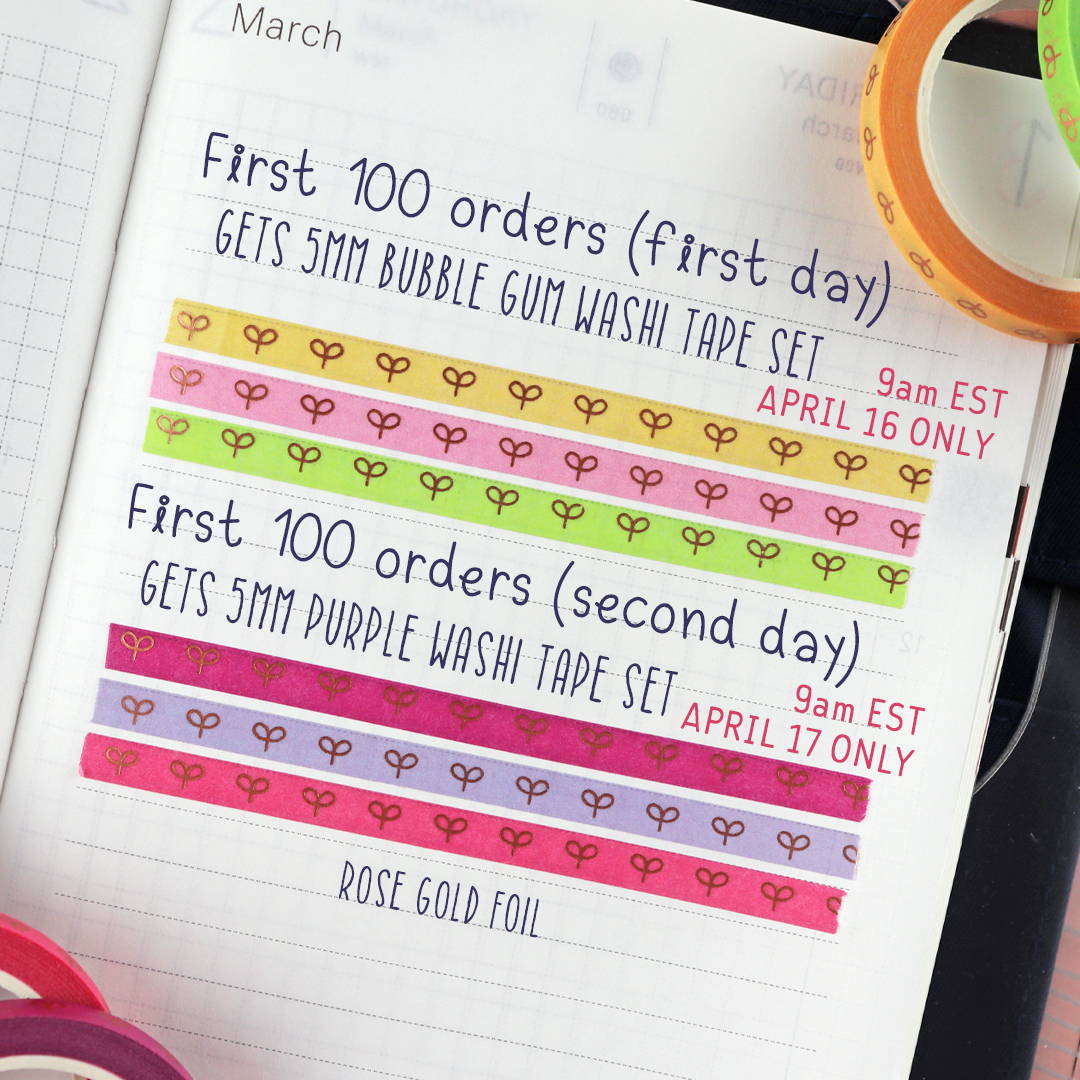 March
First 100 orders (first day)
GETS 5MM BUBBLE GUM WASHI TAPE SET
9am EST
APRIL 16 ONLY
First 100 orders (second day)
GETS 5MM PURPLE WASHI TAPE SET
9am EST
APRIL 17 ONLY
ROSE GOLD FOIL
12
FRIDAY
March
080